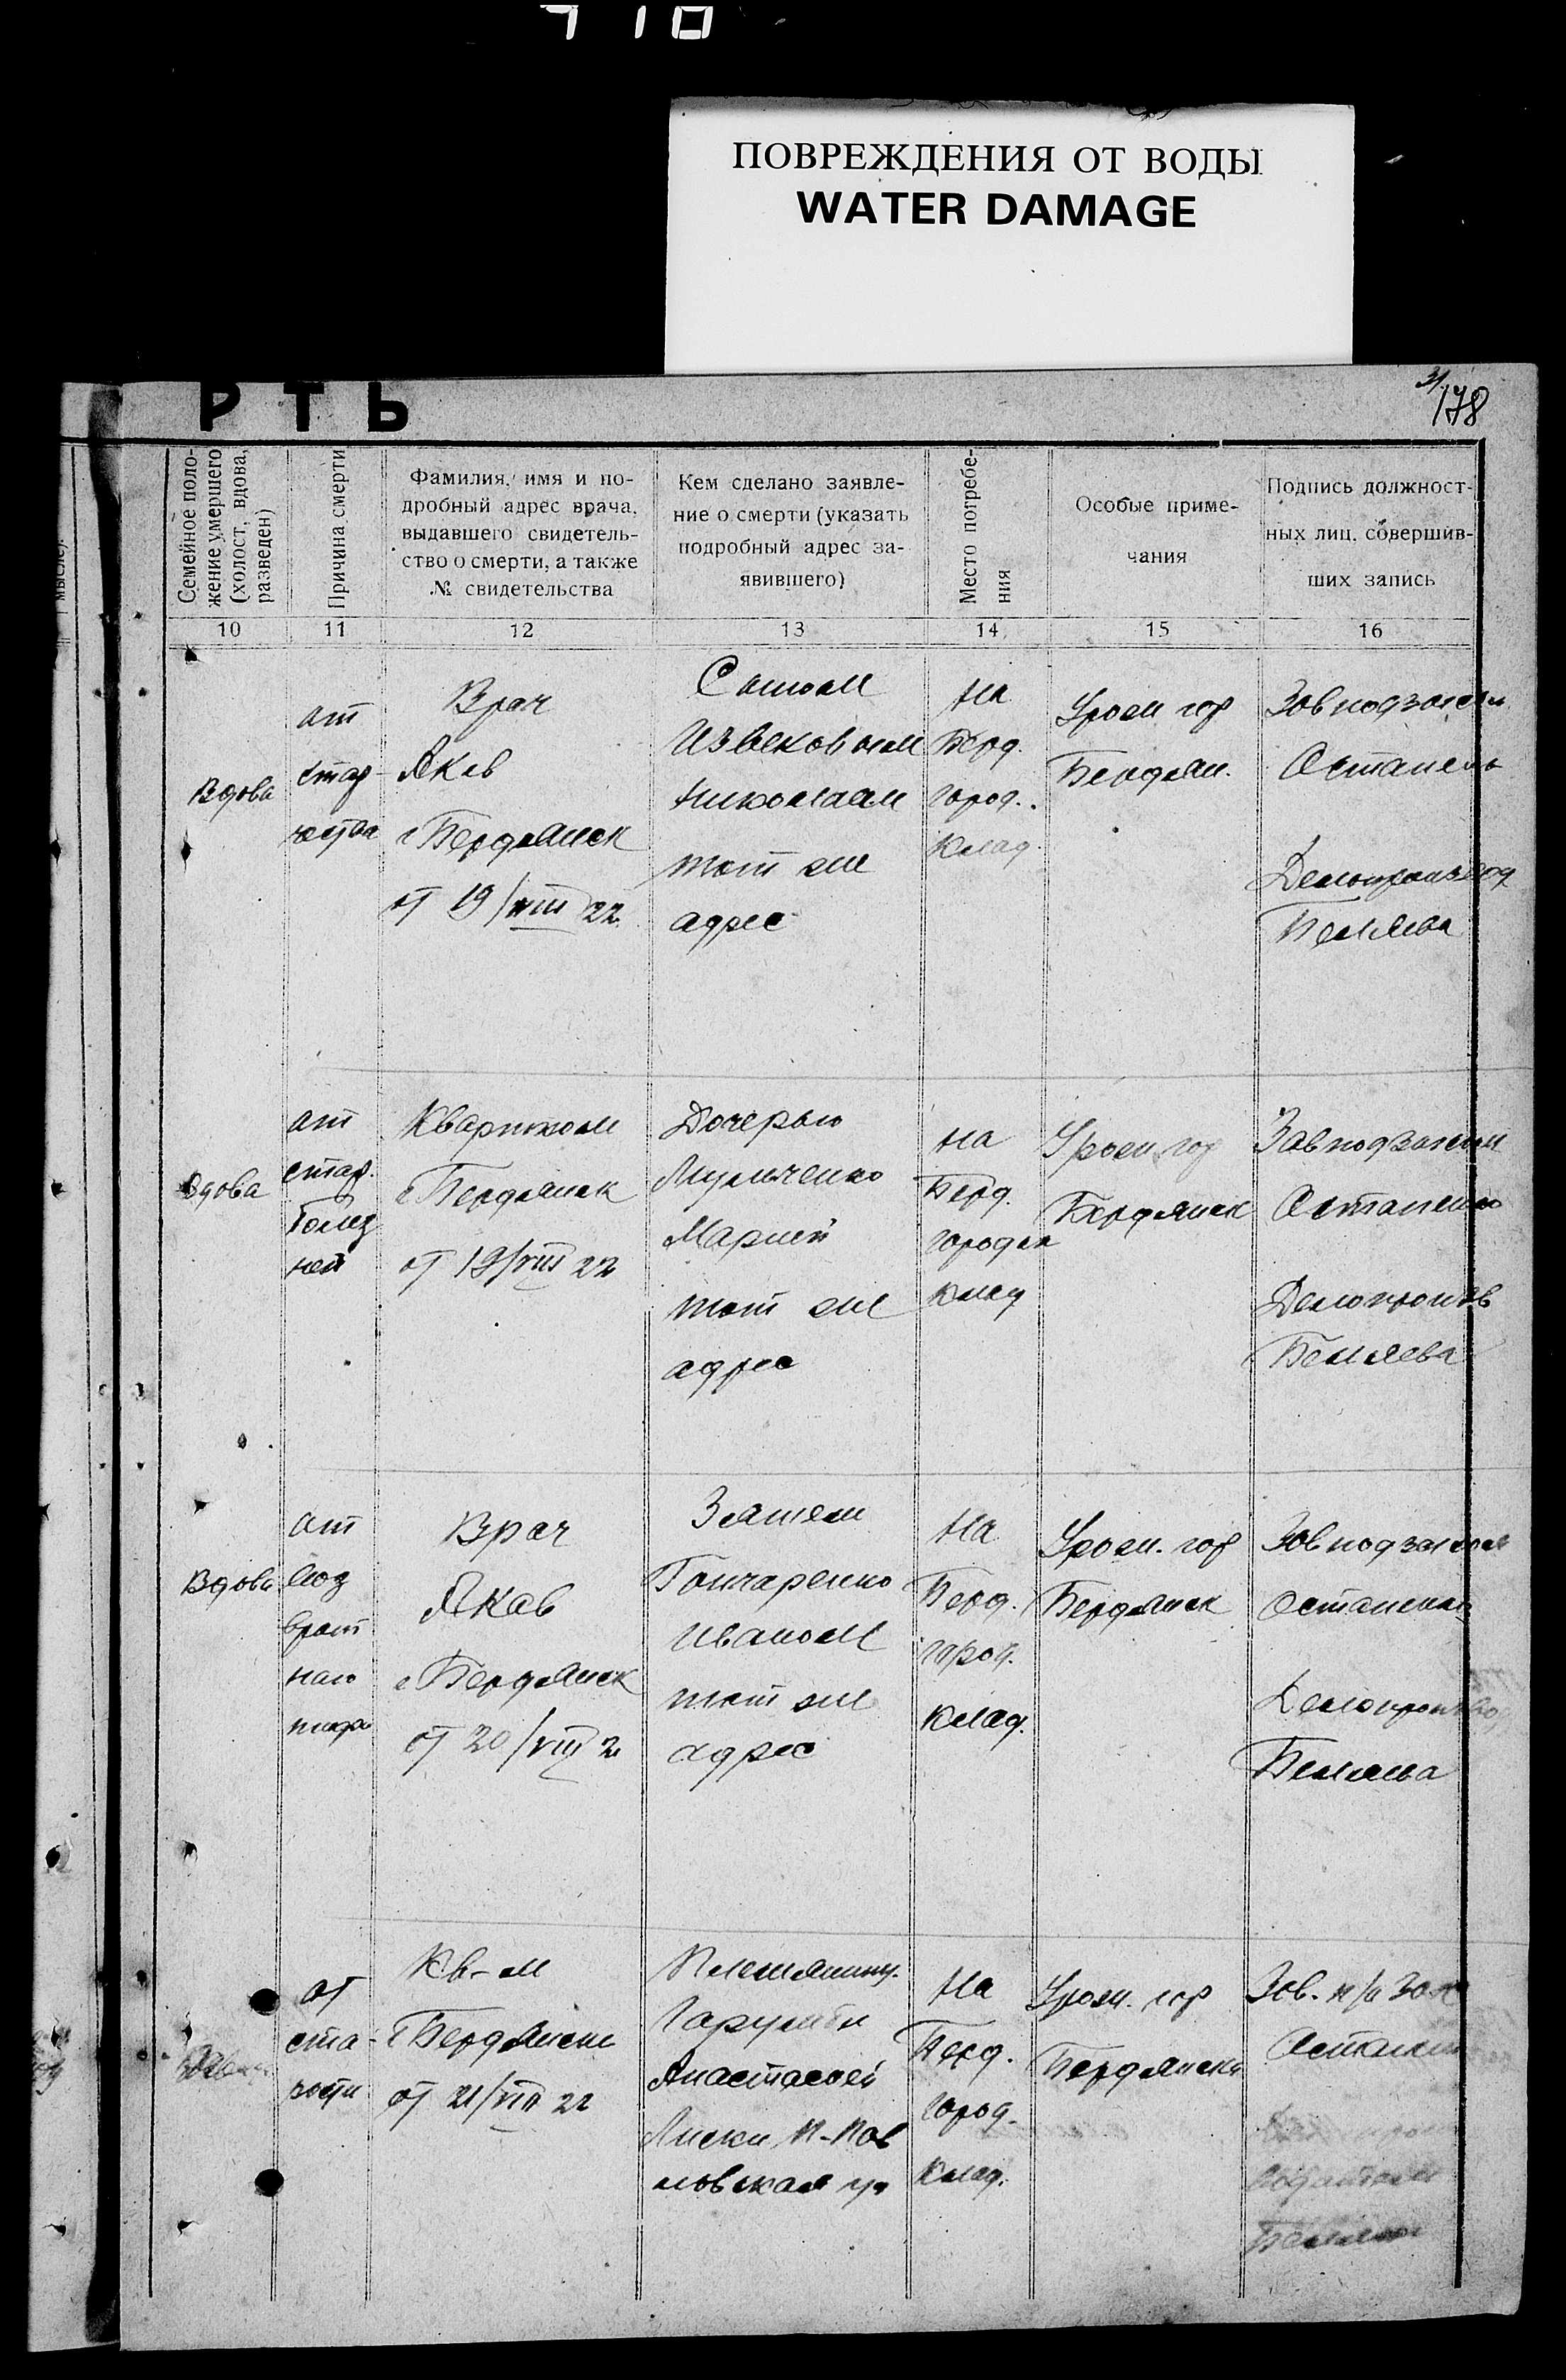 ПОВРЕЖДЕНИЯ ОТ ВОДЫ
WATER DAMAGE
РТЬ
178
Семейное поло-
жение умершего
(холост, вдова,
разведен)
Причина смерти
Фамилия, имя и по-
дробный адрес врача,
выдавшего свидетель-
ство о смерти, а также
№ свидетельства
Кем сделано заявле-
ние о смерти (указать
подробный адрес за-
явившего)
Место погребе-
ния
Особые приме-
чания
Подпись должност-
ных лиц, совершив-
ших запись
10
11
12
13
14
15
16
Вдова
от
стар-
чества
Врач
Яков
г Бердянск
от 19/VIII 22
Сыном
Извековым
Николаем
тот же
адрес
На
Берд.
город.
клад.
Урож гор
Бердян.
Завподзагсом
Остапенко
Делопроизвод
Беляева
Вдова
от
стар.
болез
ней
Квартком
г Бердянск
от 19/VIII 22
Дочерью
Марией
тот же
адрес
на
Берд.
городск
клад
Урож. гор
Бердянск
Завподзагсом
Остапенко
Делопроизв
Беляева
Вдова
от
воз
врат
ного
тифа
Врач
Яков
г Бердянск
от 20/VIII 2
Зятем
Гончаренко
Иваном
тот же
адрес
На
Берд.
город.
клад.
Урож. гор
Бердянск
Завподзагсом
Остапенко
Делопроизвод
Беляева
от
ста-
рости
Кв-м
г Бердянск
от 21/VIII 22
Анастасией
Лиски П-Пав
ловская ул
На
Берд.
город.
клад.
Урож. гор
Бердянска
Зав. п/о Заг
Остапен
Беляева